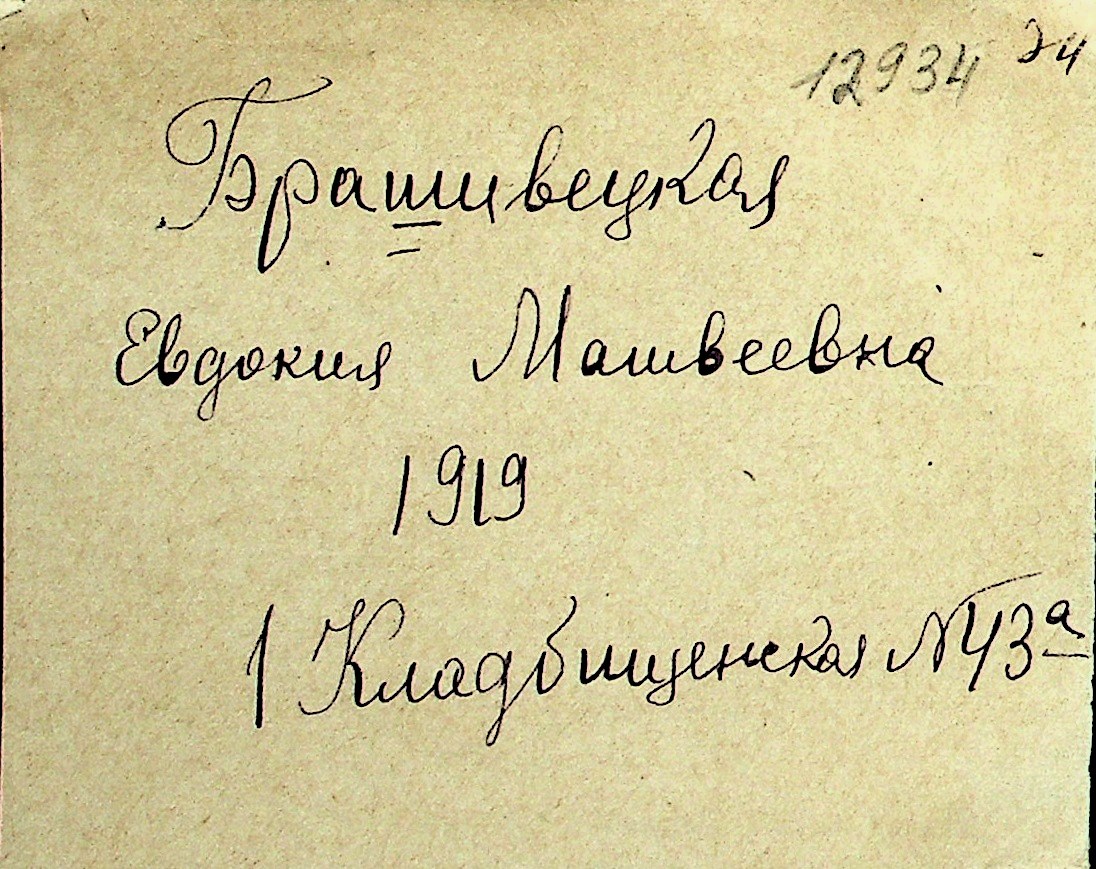 12934
Брашивецкая
Евдокия Матвеевна
1919
1 Кладбищенская №43а